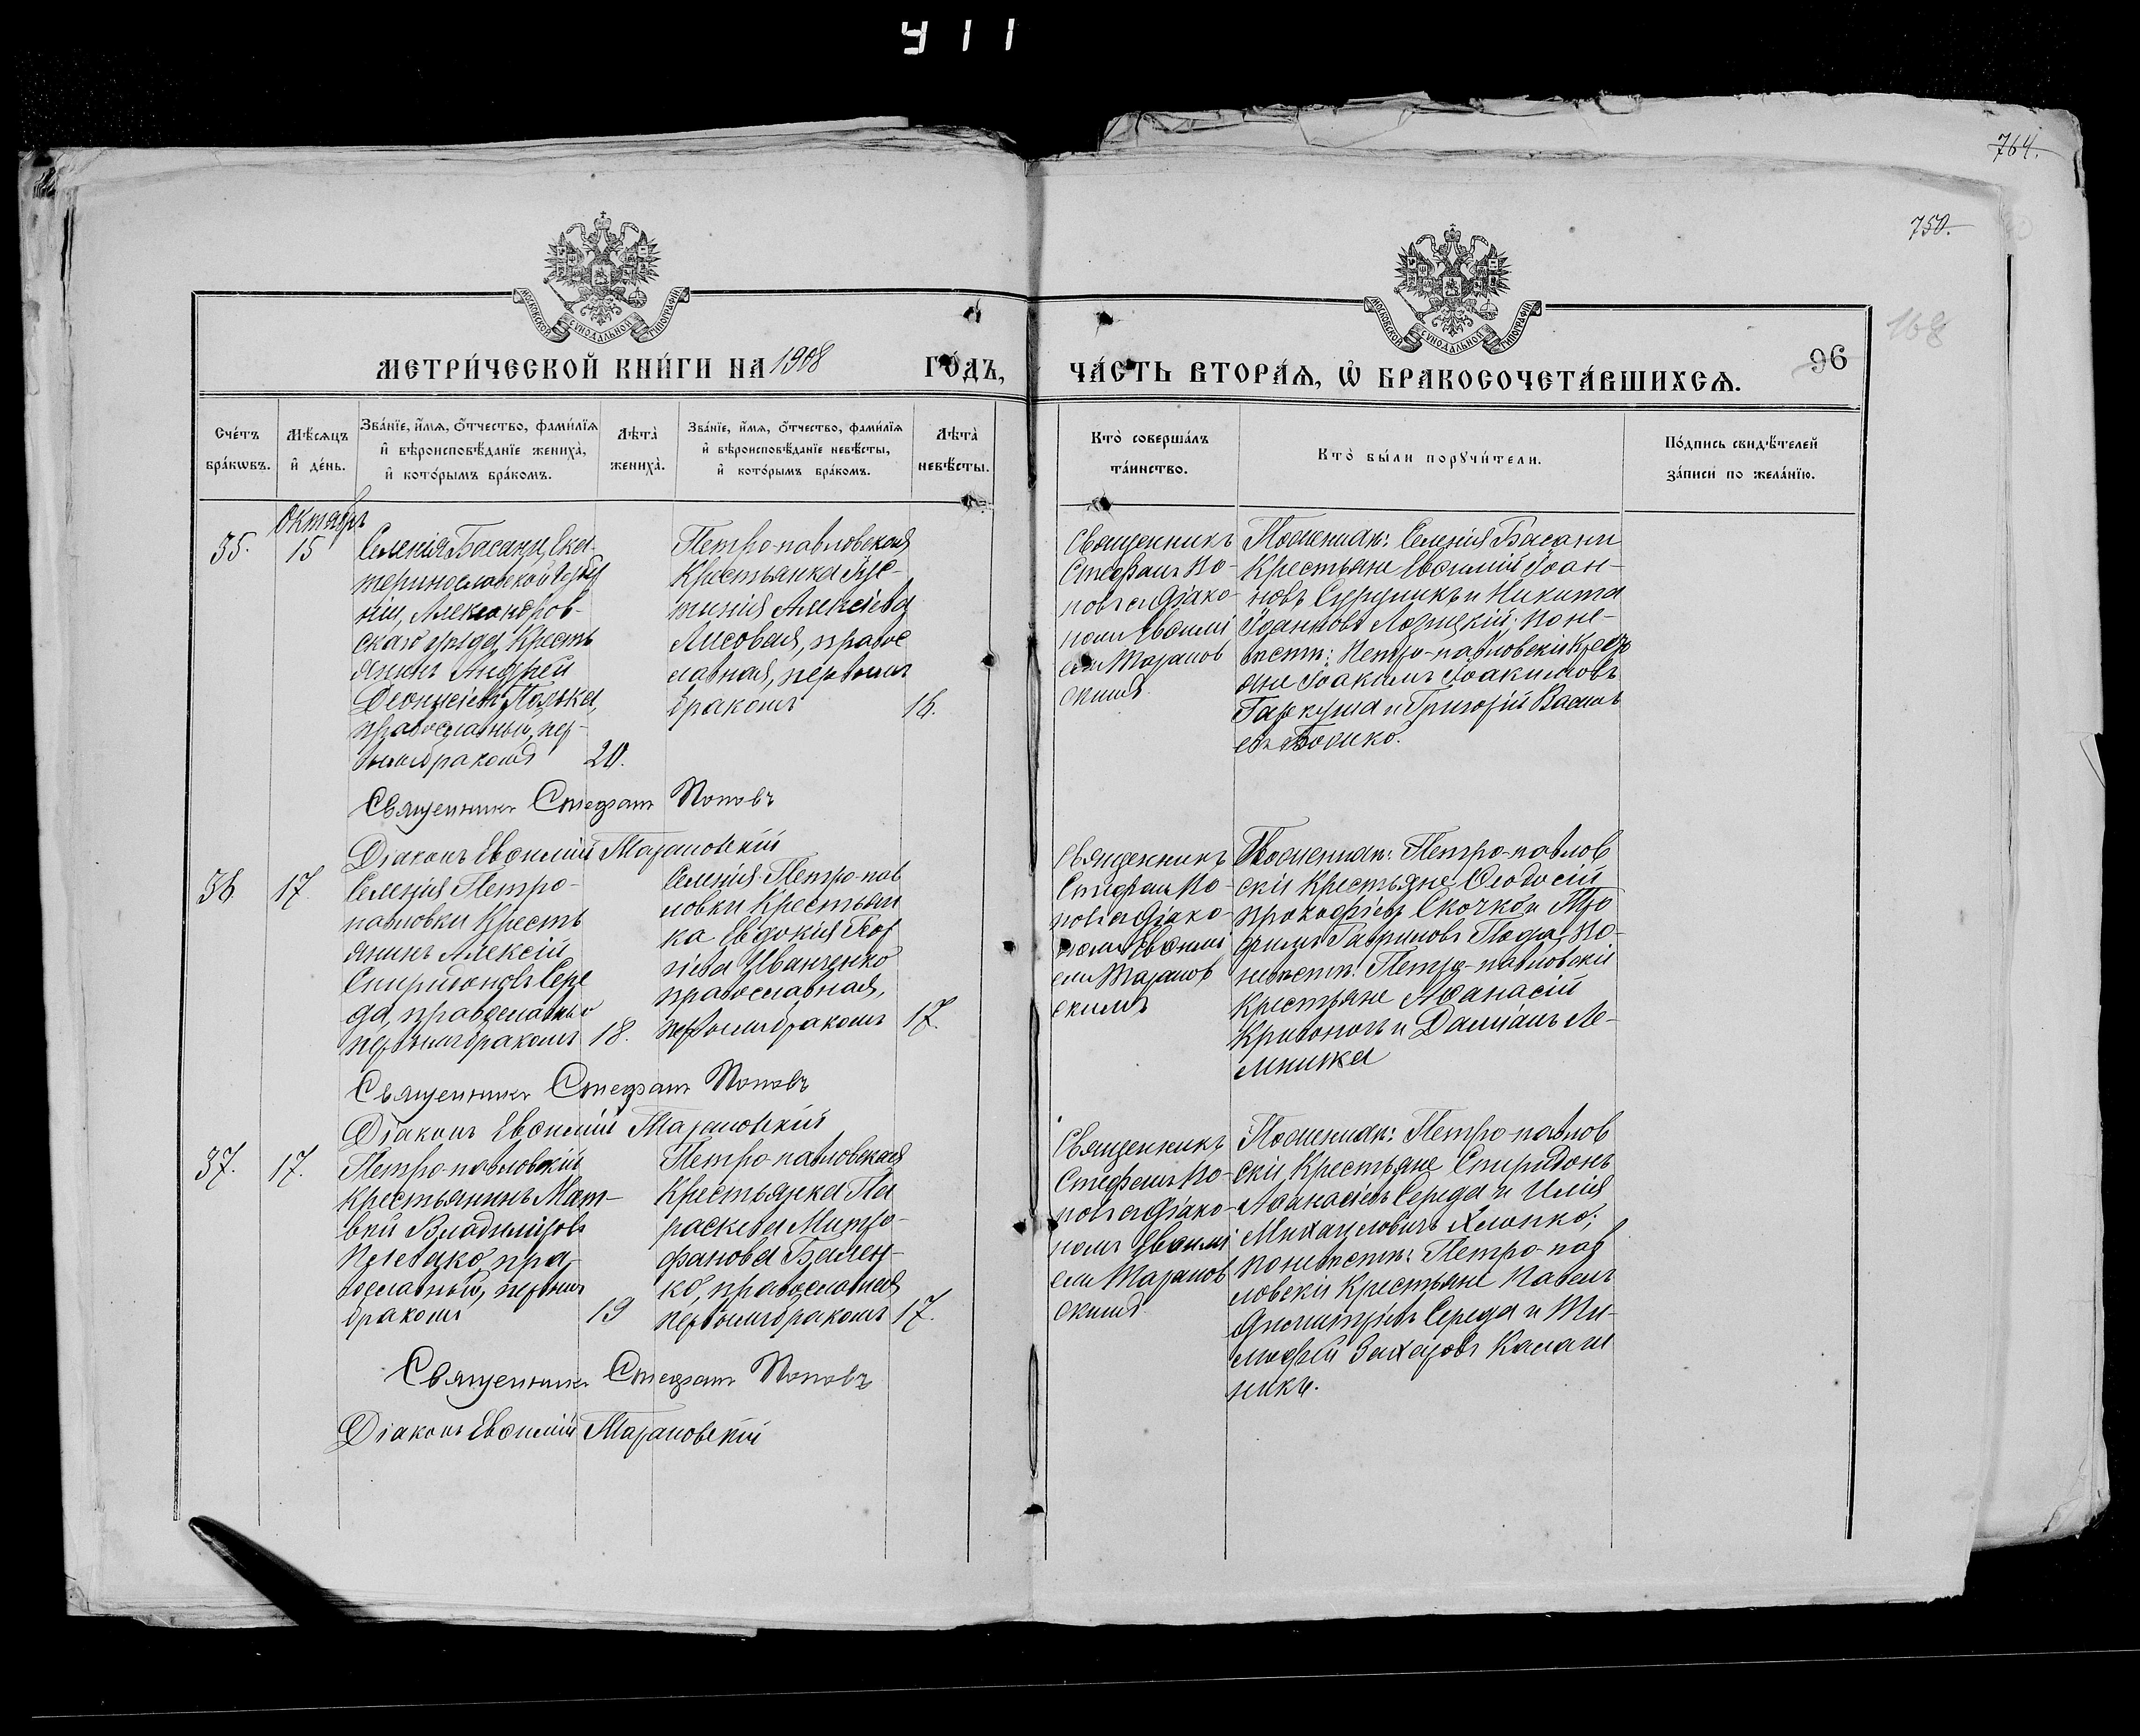 УII
764.
750.
168
96
МОСКОВСКОЙ СѴНОДАЛЬНОЙ ТИПОГРАФІИ
МОСКОВСКОЙ СѴНОДАЛЬНОЙ ТИПОГРАФІИ
МЕТРИ́ЧЕСКОЙ КНИ́ГИ НА 1908 ГО́ДЪ,
ЧА́СТЬ ВТОРА́Ѧ, Ѡ҆ БРАКОСОЧЕТА́ВШИХСѦ.
Сче́тъ бра́кѡвъ.
Мѣ́сѧцъ и҆ де́нь.
Зва́нїе, и҆́мѧ, ѻ҆́тчество, фами́лїѧ и҆ вѣроисповѣ́данїе жениха̀, и҆ кото́рымъ бра́комъ.
Лѣта̀ жениха̀.
Зва́нїе, и҆́мѧ, ѻ҆́тчество, фами́лїѧ и҆ вѣроисповѣ́данїе невѣ́сты, и҆ кото́рымъ бра́комъ.
Лѣта̀ невѣ́сты.
Кто̀ соверша́лъ та́инство.
Кто̀ бы́ли порꙋчи́тели.
По́дпись свидѣ́телей за́писи по жела́нїю.
Октябрь
35.
15
Селенія Басани, Ека-
теринославской губер
ніи, Александров-
скаго уѣзда, Кресть
янинъ Андрей
Діонисіевъ
православный, пер-
вымъ бракомъ
20.
Петро-павловская
Крестьянка Іус-
тинія Алексіева
Лисовая, правос
лавная, первымъ
бракомъ
16.
Священникъ
Стефанъ По-
повъ съ діако-
номъ Евѳимі
емъ Таранов
скимъ.
По женихѣ: Селенія Басани
Крестьяне Евѳимій Іоан-
новъ и Никита
Іоанновъ По не-
вѣстѣ: Петро-павловскіе Крестья
не Іоакимъ Іоакимовъ
Гаркуша и Григорій Василь
евъ Бойко.
Священникъ Стефанъ Поповъ
Діаконъ Евѳимій Тарановскій
36.
17.
Селенія Петро-
павловки Кресть
янинъ Алексій
Спиридоновъ Сере
да, православный
первымъ бракомъ
18.
Селенія Петро-пав
ловки Крестьян
ка Евдокія Геор
гіева Иванченко
православная,
первымъ бракомъ
17.
Священникъ
Стефанъ По-
повъ съ діако-
номъ Евѳимі
емъ Таранов
скимъ
По женихѣ: Петро-павлов
скіе Крестьяне Ѳеодосій
Прокофіевъ Скочко и Тро
фимъ Гавриловъ По-
невѣстѣ: Петро-павловскіе
Крестьяне Аѳанасій
Кривоносъ и Даміанъ Ле-
Священникъ Стефанъ Поповъ
Діаконъ Евѳимій Тарановскій
37.
17.
Петро-павловскій
крестьянинъ Мат-
вѣй Владиміровъ
пра-
вославный, первымъ
бракомъ
19
Петро-павловская
Крестьянка Па
раскева Митро-
фанова Бален-
ко, православная
первымъ бракомъ
17.
Священникъ
Стефанъ По-
повъ съ діако-
номъ Евѳимі
емъ Таранов
скимъ.
По женихѣ: Петро-павлов
скіе Крестьяне Спиридонъ
Аѳанасіевъ Середа и Илія
Михайловичъ Хлопко;
по невѣстѣ: Петро-пав
ловскіе Крестьяне Павелъ
Димитріевъ Середа и Ти-
моѳей Захаровъ Калаш
никъ.
Священникъ Стефанъ Поповъ
Діаконъ Евѳимій Тарановскій